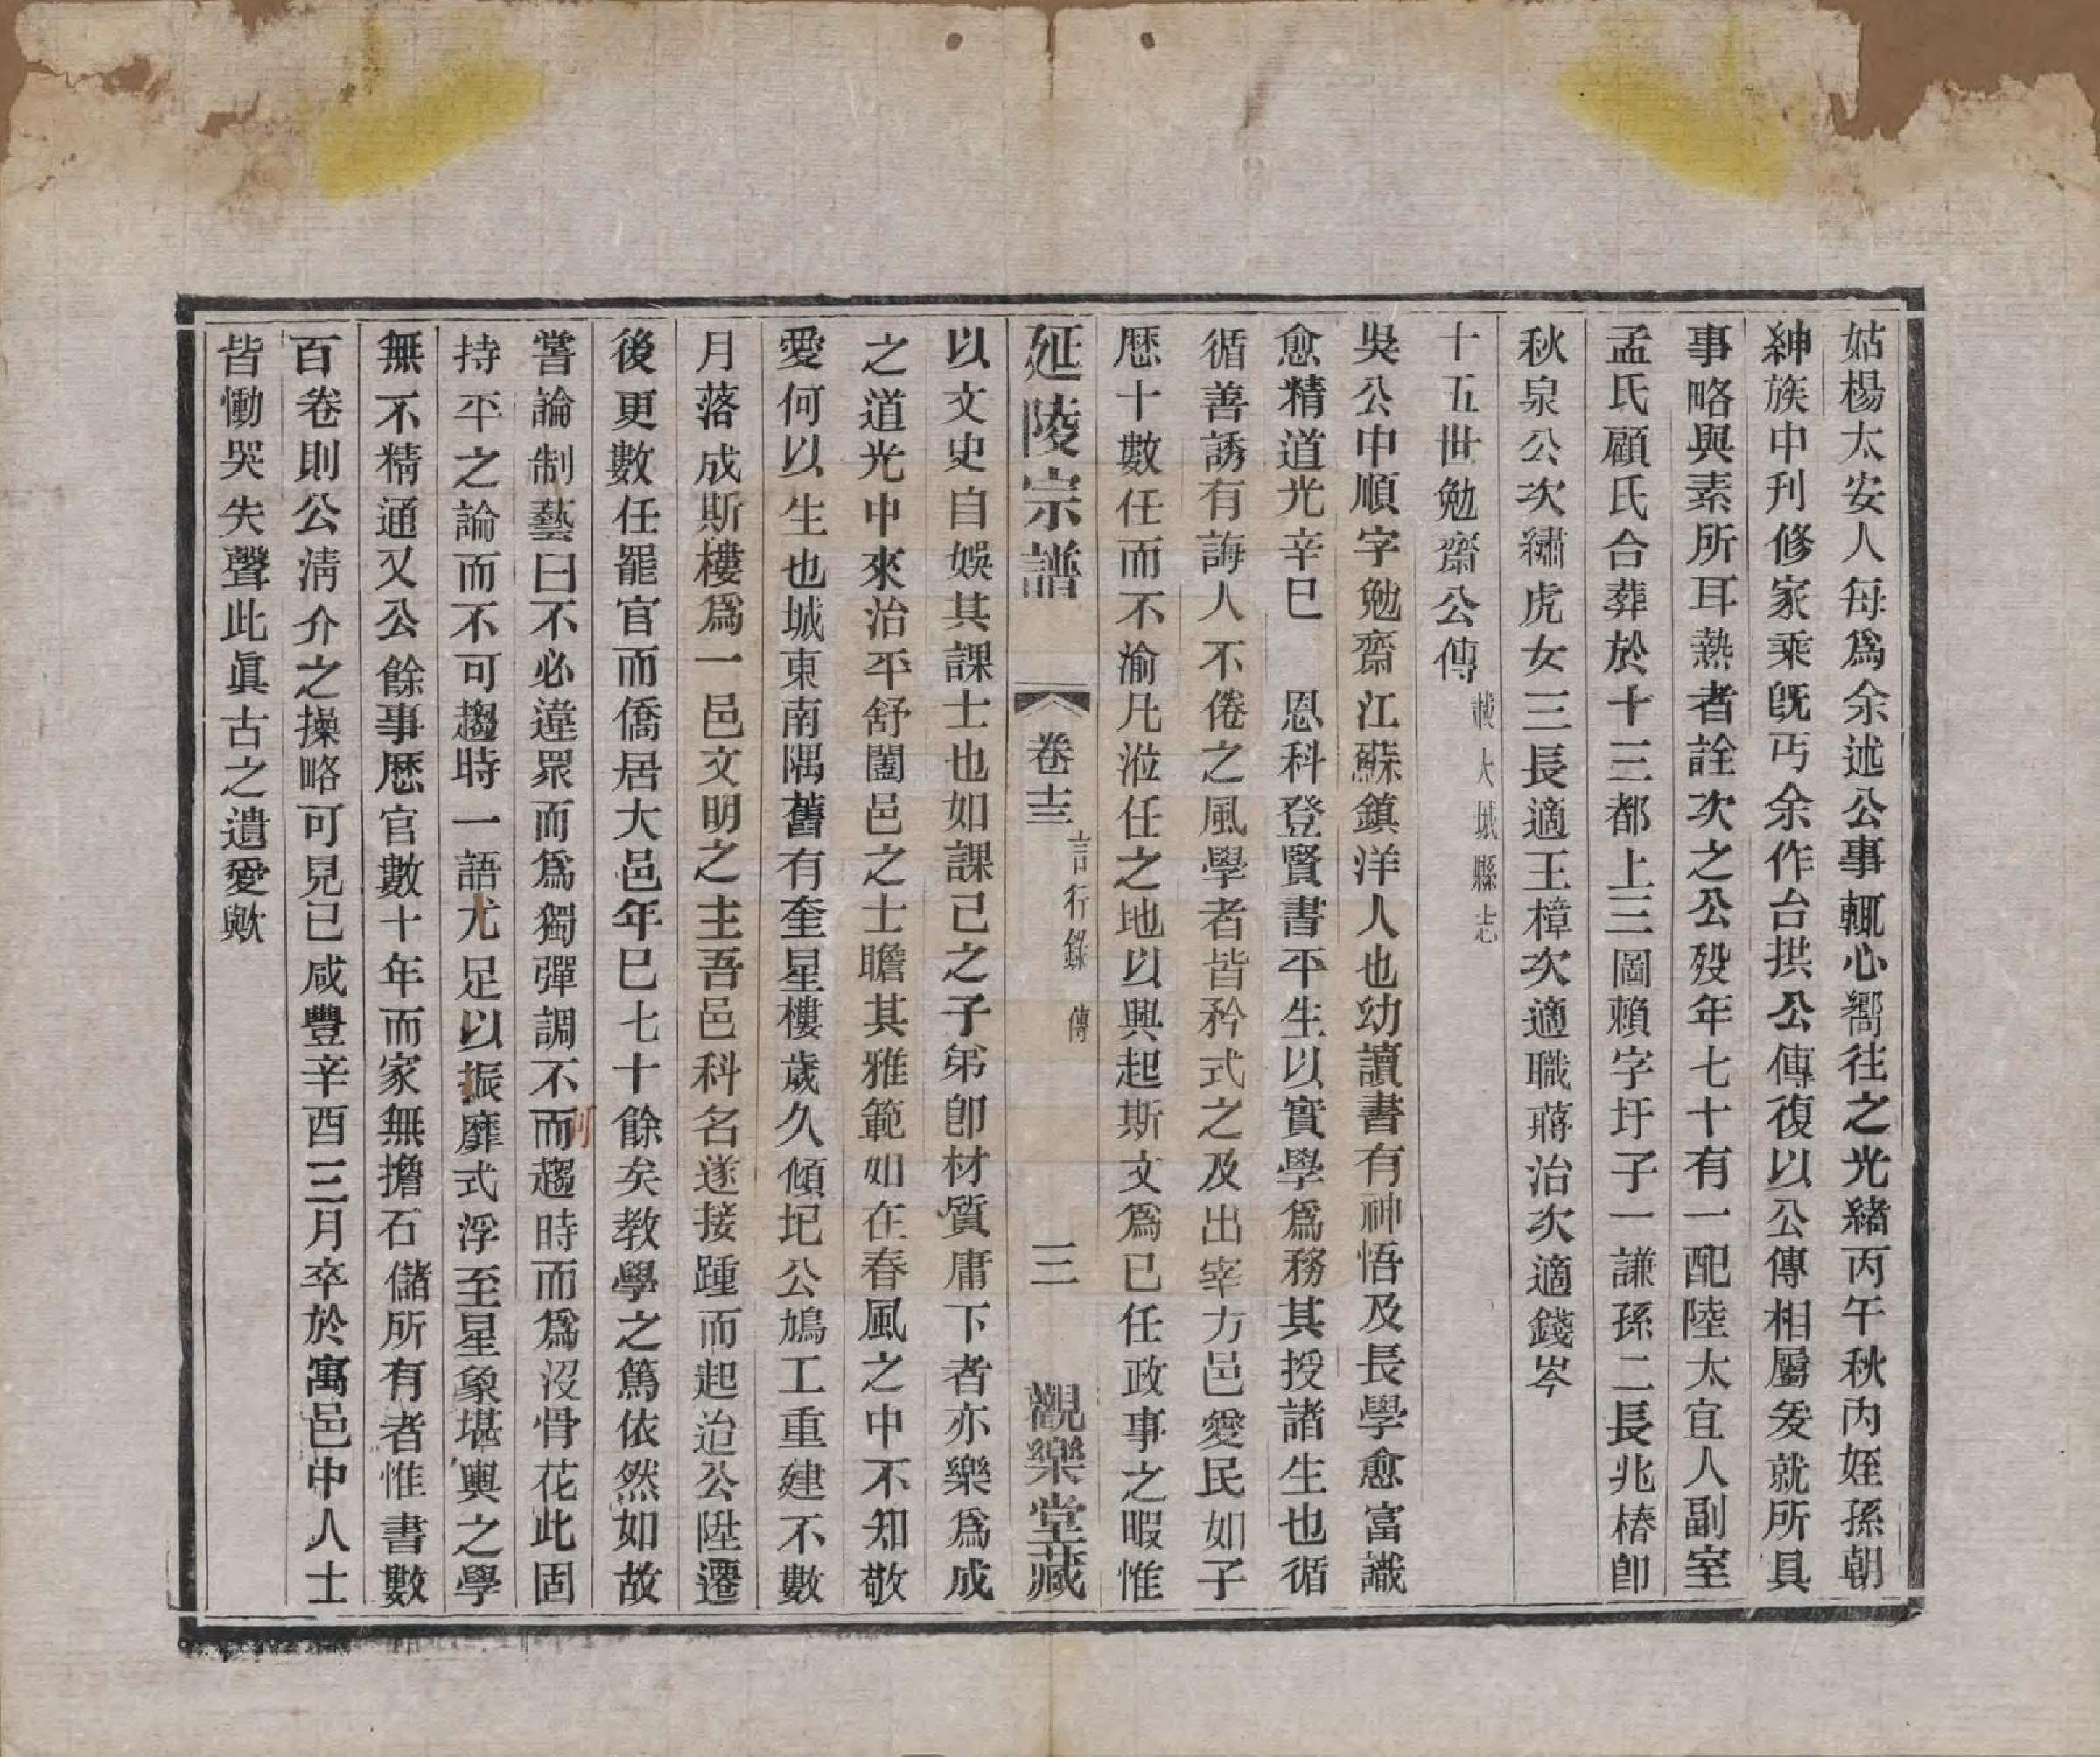 姑楊太安人每爲余述公事輒心嚮往之光緒丙午秋內姪孫朝
紳族中刋修家乘旣丐余作台拱公傳復以公傳相屬爰就所具
事略與素所耳熟者詮次之公歿年七十有一配陸太宜人副室
孟氏顧氏合葬於十三都上三圖賴字圩子一謙孫二長兆椿卽
秋泉公次繡虎女三長適王樟次適職蔣治次適錢岑
十五世勉齋公傳 載大城縣志
吳公中順字勉齋江蘇鎮洋人也幼讀書有神悟及長學愈富識
愈精道光辛巳 恩科登賢書平生以實學爲務其授諸生也循
循善誘有誨人不倦之風學者皆矜式之及出宰方邑愛民如子
歷十數任而不渝凡涖任之地以興起斯文爲己任政事之暇惟
延陵宗譜 卷十三 言行錄 傳 三 觀樂堂藏
以文史自娛其課士也如課己之子弟卽材質庸下者亦樂爲成
之道光中來治平舒闔邑之士瞻其雅範如在春風之中不知敬
愛何以生也城東南隅舊有奎星樓歲久傾圮公鳩工重建不數
月落成斯樓爲一邑文明之主吾邑科名遂接踵而起迨公陞遷
後更數任罷官而僑居大邑年已七十餘矣教學之篤依然如故
嘗論制藝曰不必違眾而爲獨彈調不而趨時而爲沒骨花此固
持平之論而不可趨時一語尤足以振靡式浮至星象堪輿之學
無不精通又公餘事歷官數十年而家無擔石儲所有者惟書數
百卷則公淸介之操略可見已咸豐辛酉三月卒於寓邑中人士
皆慟哭失聲此眞古之遺愛歟